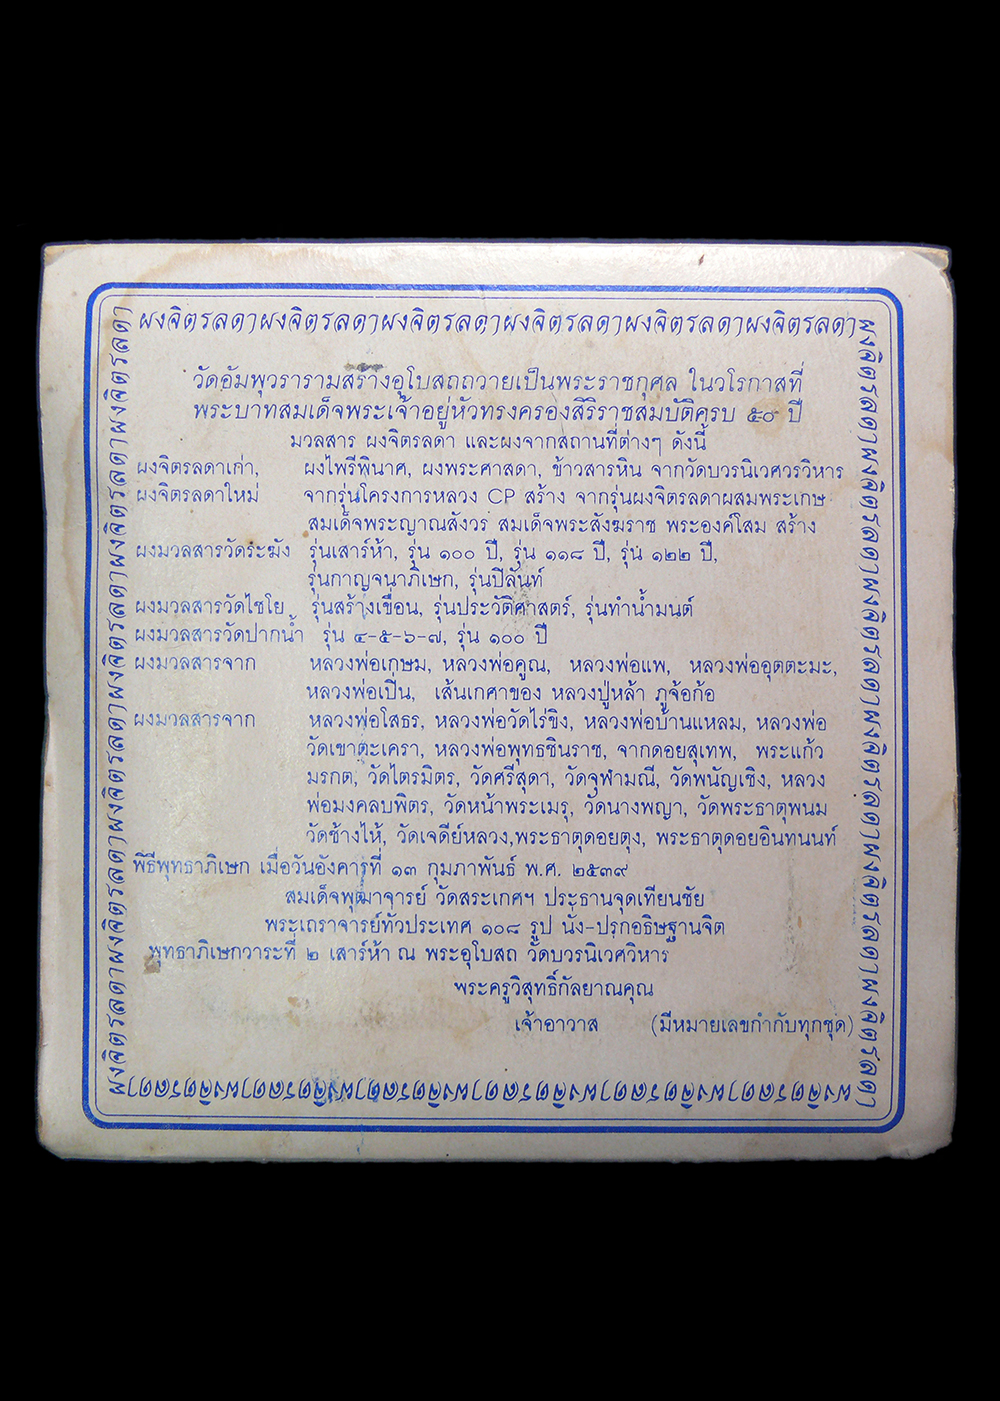 ผงจิตรลดาผงจิตรลดาผงจิตรลดาผงจิตรลดาผงจิตรลดาผงจิตรลดา
วัดอัมพุวรารามสร้างอุโบสถถวายเป็นพระราชกุศล ในวโรกาสที่
พระบาทสมเด็จพระเจ้าอยู่หัวทรงครองสิริราชสมบัติครบ ๕๐ ปี
มวลสาร ผงจิตรลดา และผงจากสถานที่ต่างๆ ดังนี้
ผงจิตรลดาเก่า, ผงไพรีพินาศ, ผงพระศาสดา, ข้าวสารหิน จากวัดบวรนิเวศวรวิหาร
ผงจิตรลดาใหม่ จากรุ่นโครงการหลวง CP สร้าง จากรุ่นผงจิตรลดาผสมพระเกษ
สมเด็จพระญาณสังวร สมเด็จพระสังฆราช พระองค์โสม สร้าง
ผงมวลสารวัดระฆัง รุ่นเสาร์ห้า, รุ่น ๑๐๐ ปี, รุ่น ๑๑๘ ปี, รุ่น ๑๒๒ ปี,
รุ่นกาญจนาภิเษก, รุ่นปิลันท์
ผงมวลสารวัดไชโย รุ่นสร้างเขื่อน, รุ่นประวัติศาสตร์, รุ่นทำน้ำมนต์
ผงมวลสารวัดปากน้ำ รุ่น ๔-๕-๖-๗, รุ่น ๑๐๐ ปี
ผงมวลสารจาก หลวงพ่อเกษม, หลวงพ่อคูณ, หลวงพ่อแพ, หลวงพ่ออุตตะมะ,
หลวงพ่อเปิ่น, เส้นเกศาของ หลวงปู่หล้า ภูจ้อก้อ
ผงมวลสารจาก หลวงพ่อโสธร, หลวงพ่อวัดไร่ขิง, หลวงพ่อบ้านแหลม, หลวงพ่อ
วัดเขาตะเครา, หลวงพ่อพุทธชินราช, จากดอยสุเทพ, พระแก้ว
มรกต, วัดไตรมิตร, วัดศรีสุดา, วัดจุฬามณี, วัดพนัญเชิง, หลวง
พ่อมงคลบพิตร, วัดหน้าพระเมรุ, วัดนางพญา, วัดพระธาตุพนม
วัดช้างไห้, วัดเจดีย์หลวง,พระธาตุดอยตุง, พระธาตุดอยอินทนนท์
พิธีพุทธาภิเษก เมื่อวันอังคารที่ ๑๓ กุมภาพันธ์ พ.ศ. ๒๕๓๙
สมเด็จพุฒาจารย์ วัดสระเกศฯ ประธานจุดเทียนชัย
พระเถราจารย์ทั่วประเทศ ๑๐๘ รูป นั่ง-ปรกอธิษฐานจิต
พุทธาภิเษกวาระที่ ๒ เสาร์ห้า ณ พระอุโบสถ วัดบวรนิเวศวิหาร
พระครูวิสุทธิ์กัลยาณคุณ
เจ้าอาวาส (มีหมายเลขกำกับทุกชุด)
ผงจิตรลดาผงจิตรลดาผงจิตรลดาผงจิตรลดาผงจิตรลดาผงจิตรลดา
ผงจิตรลดาผงจิตรลดาผงจิตรลดาผงจิตรลดาผงจิตรลดาผงจิตรลดา
ผงจิตรลดาผงจิตรลดาผงจิตรลดาผงจิตรลดาผงจิตรลดาผงจิตรลดา